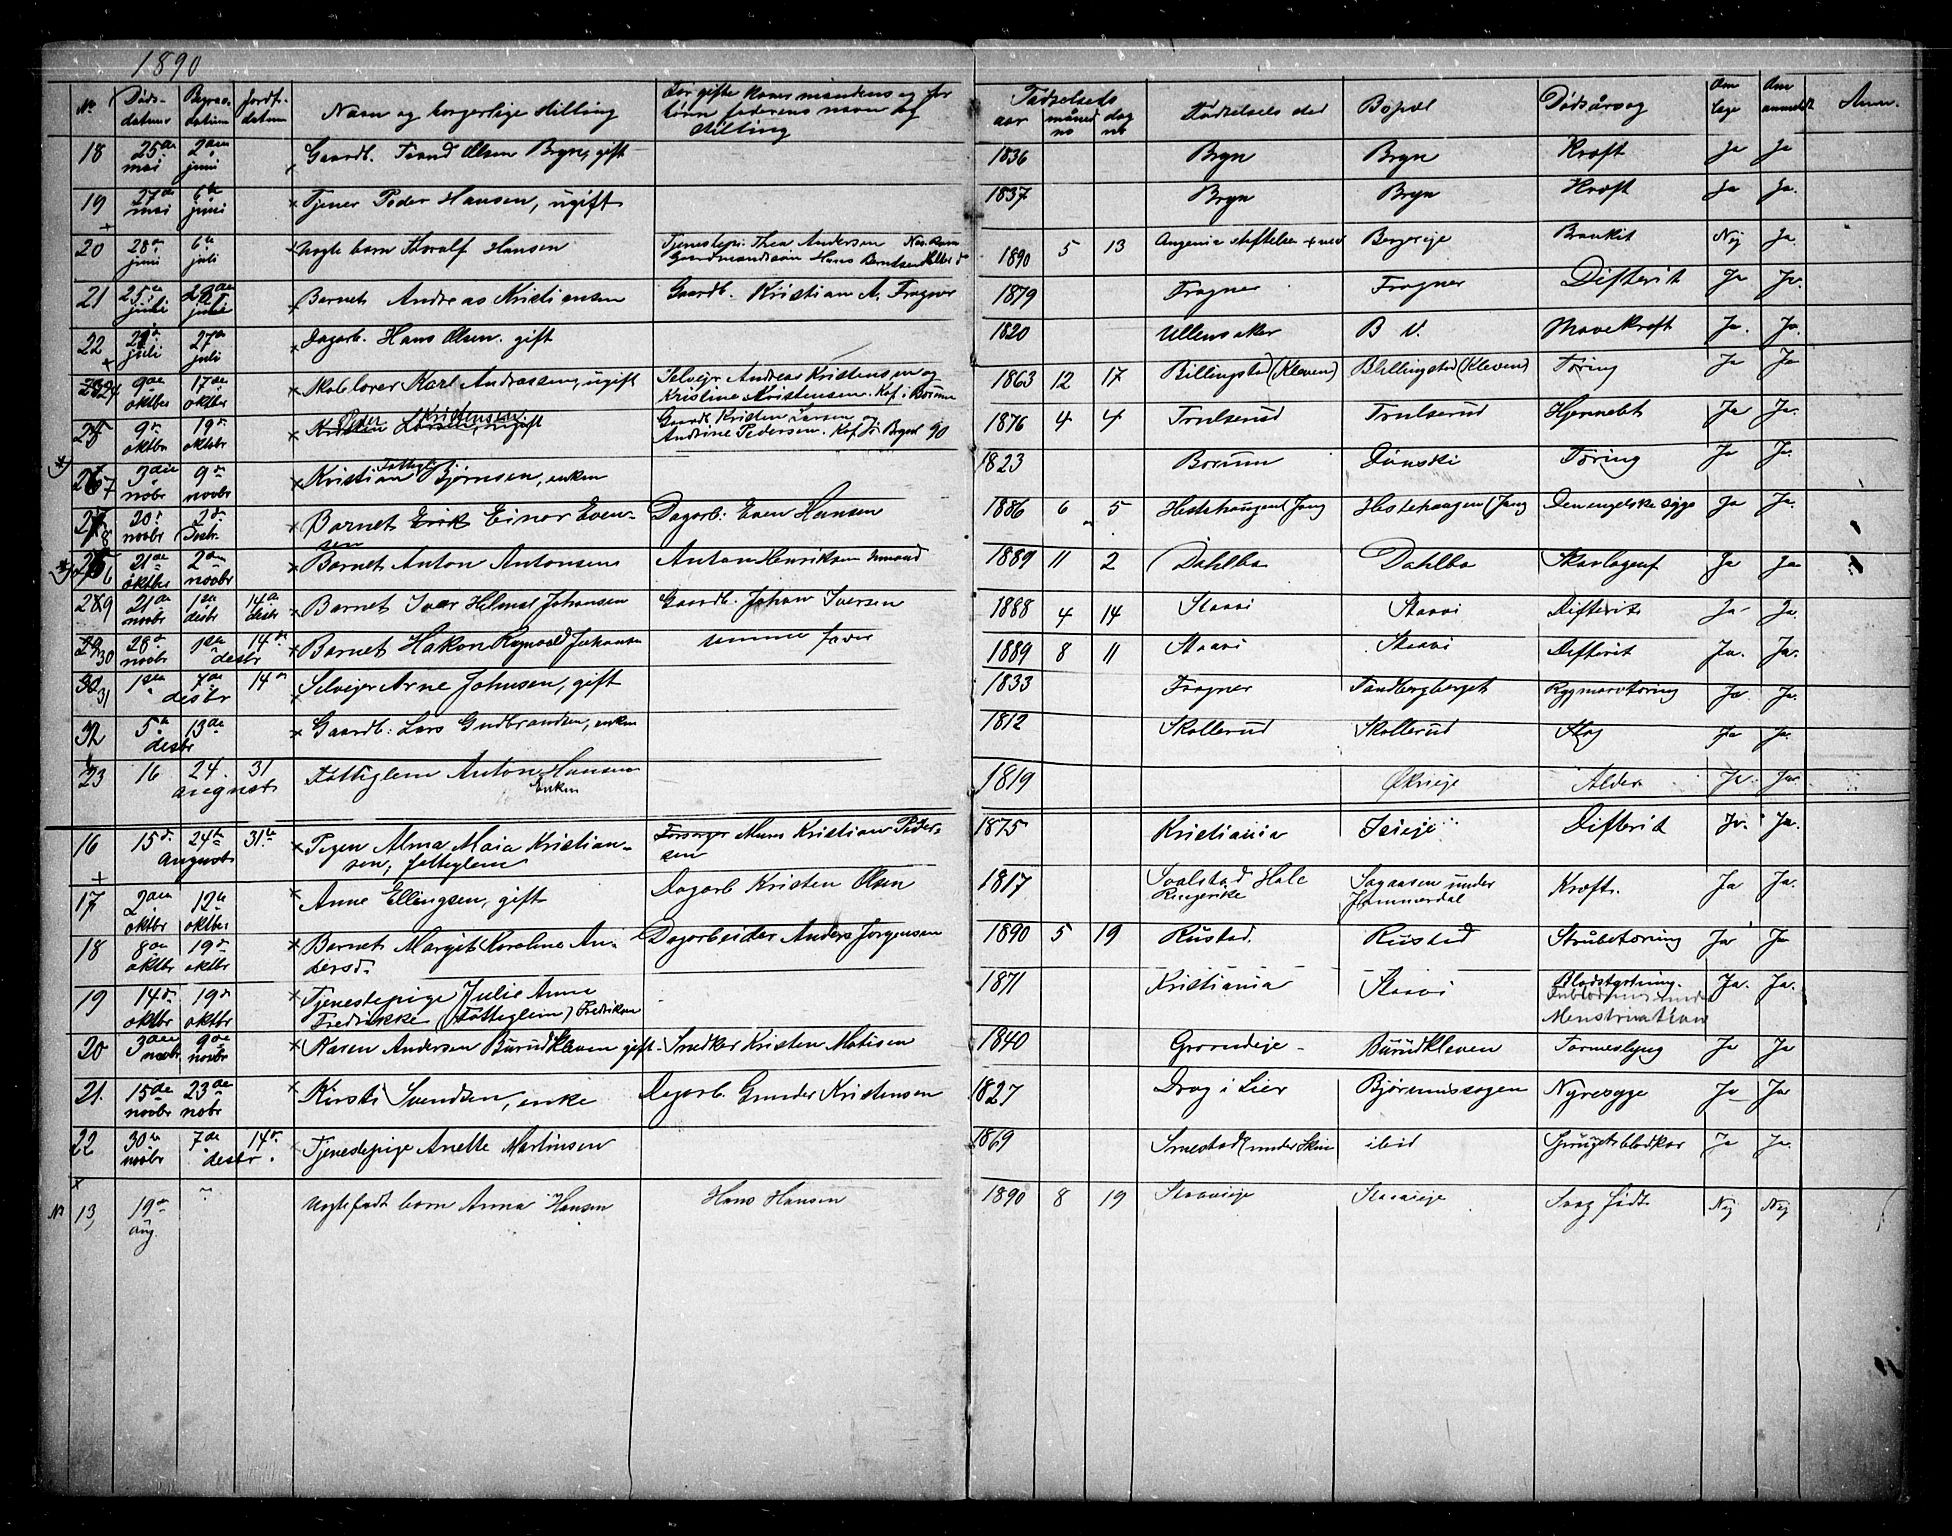 1890
No Døds-datum Begrav.datum Jordf.datum Navn og borgerlige stilling For gifte koner mandens og for børn faderens navn og stilling Fødselsets aar måned no dag no Fødselsets sted Bopæl Dødsårsag Om læge Om anmeldt Anm.
18 25de mai 2den juni Gaardb. Trond Olsen Bryn, gift 1836 Bryn Bryn Kræft Ja Ja
19 27de mai 6te juni Tjener Peder Hansen, ugift 1837 Bryn Bryn Kræft Ja Ja.
20 28de juni 6te juli uægte barn Thoralf Hansen Tjenestepi. Thea Andersen Gaardmandssøn Hans Berntsen 1890 5 13 stiftelse Bergereie Bronkit Nej Ja.
21 25de juli juli Barnet Andreas Kristiansen Gaardb. Kristian A. Fragner 1879 Fragner Fragner Difterit Ja Ja.
22 juli 27de juli Dagarb. Hans Olsen. gift 1820 Ullensaker B V. Mavekræft Ja. Ja.
24 9de oktbr 17de oktbr Skolelærer Karl Andreassen, ugift Selveier Andreas Kristensen og Kristine Kristensen. 1863 12 17 Billingstad (Kleven) Billingstad (Kleven) Tæring Ja Ja
25 9de oktbr 19de oktobr Peder Kristensen. ugift Gaardb. Kristen Larsen og Andrine Pedersen. 1876 4 4 Trulserud Trulserud Hjernebet Ja Ja.
27 3die novbr 9de novbr Kristian Bjørnsen, enkem Fattigl. 1823 Borum Tæring Ja Ja.
28 20de novbr 2den Desbr. Barnet Erik Einar Evensen Dagarb. Even Hansen 1886 6 5 Hestehaugen (Jong Hestehaugen (Jong Den engelske syge Ja Ja.
26 21de oktbr 2den novbr Barnet Anton Antonsen Anton Henriksen 1889 11 2 Dahlbo Dahlbo Skarlagenf Ja Ja
29 21de novbr 1ste desbr 14de desbr Barnet Ivar Helmer Johansen Gaardb. Johan Iversen 1888 4 14 Staavi Staavi Difterit Ja Ja.
30 28de novbr 1ste desbr 14de Barnet Hakon Ragnvald Johansen samme fader 1889 8 11 Staavi Staavi Difterit Ja. Ja.
31 1ste 7de desbr 14de Selveier Arne Johnsen, gift 1833 Fragner Tandbergberget Rygmarvtæring Ja. Ja.
32 5te desbr 13de Gaardb. Lars Gudbrandsen, enkem 1812 Skollerud Skollerud Slag Ja Ja.
23 16 24. august 31 Fattiglem Anton Hansen Enkem 1819 Økrieje Alder Ja. Ja.
16 15de 24de august 31te Pigen Alma Maia Kristiansen, fatteglem Forsørger Murer Kristian Pedersen 1875 Kristiania Isieje Difterit Ja. Ja.
17 2den oktbr 12te oktbr Anne Ellingsen, gift Dagarb Kristen Olsen 1817 Soalstad Hole Ringerike Sagaasen under Hammerdal Kræft. Ja Ja.
18 8de oktbr 19de oktbr Barnet Margit Karoline Andersd. Dagarbeider Anders Jørgensen 1890 5 19 Rustad. Rustad Strubetæring Ja Ja
19 14de oktbr 19de oktbr Tjenestepige Julie Anna Fredrikke (Fatteglem) Fredriksen 1871 Kristiania Staavi Blodstyrtning. Menstruation Ja. Ja.
20 3die novbr 9de novbr Karen Andersen Burudkleven gift. Snedker Kristen Matisen 1840 Grorudeje Burudkleven Tarmeslyng Ja Ja
21. 15de novbr 23de nobr Kirsti Svendsen, enke Dagarb. Gunder Kristensen 1827 Drog i Lier Bjørumssagen Nyresyge Ja Ja
22 30te novbr 7de desbr. 14de Tjenestepige Anette Martinsen 1869 Smestad (under Skui ibid Sprunget blodkar Ja Ja.
No 13, 19de aug. uægtefødt barn Anna Hansen Hans Hansen 1890 8 19 Staavieje Staavieje Svag født. Nej Nej